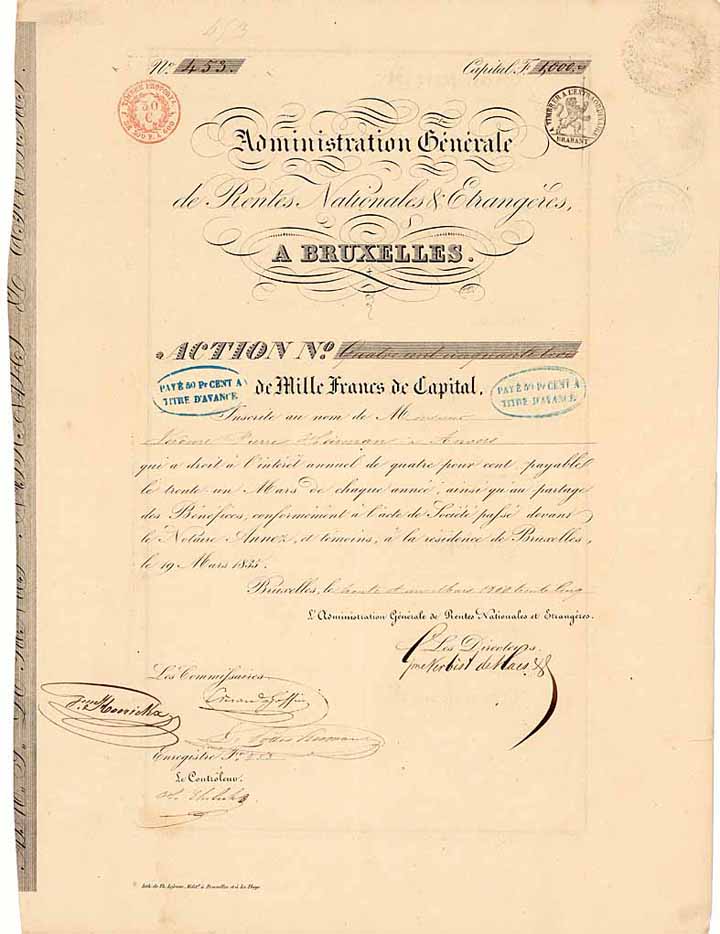 453
No. 453. Capital F. 1,000.
50 C.
TIMBRE A L'EXTRAORDINAIRE
BRABANT
Administration Générale
de Rentes Nationales & Etrangères,
A BRUXELLES.
ACTION No. Quatre cent cinquante trois
PAYÉ 50 Pr CENT A
TITRE D'AVANCE
de Mille Francs de Capital,
PAYÉ 50 Pr CENT A
TITRE D'AVANCE
Inscrite au nom de Monsieur
Pierre à Anvers
qui a droit à l'intérêt annuel de quatre pour cent, payable
le trente un Mars de chaque année, ainsi qu'au partage
des Bénéfices, conformément à l'acte de Société passé devant
le Notaire Annez, et témoins, à la résidence de Bruxelles,
le 19 Mars 1835.
Bruxelles, le trente et un Mars 1800 trente cinq
L'Administration Générale de Rentes Nationales et Etrangères.
Les Directeurs.
Les Commissaires
Enregistré Fo. 
Le Contrôleur.
Lith. de Ph. à Bruxelles et à La Haye